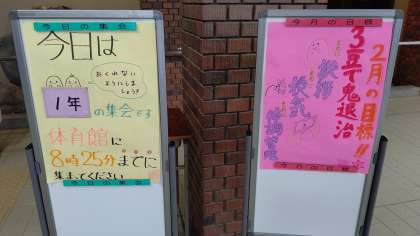 今日の集会
今日は
おくれない
ようにしま
しょう!
1年
の集会です
体育館に
8時25分までに
集まってください
今日の集会
今月の目標
2月の目標!!
3豆で鬼退治
換気
今月の目標